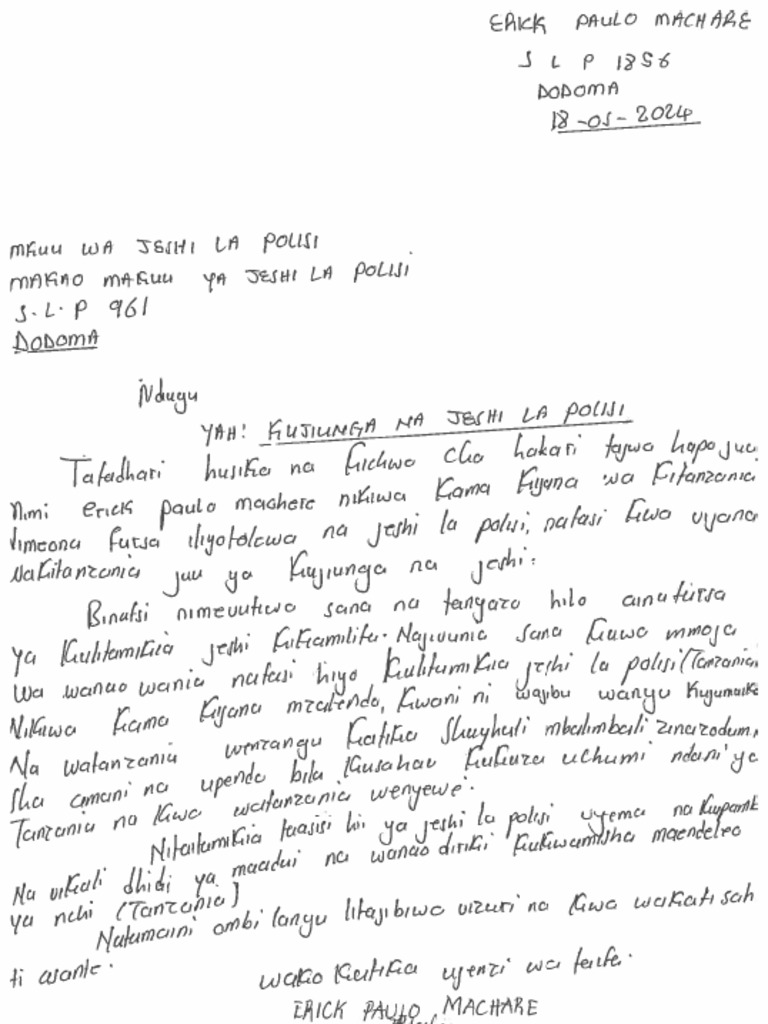 ERICK PAULO MACHARE
S L P 1856
DODOMA
18-05-2024
MKUU WA JESHI LA POLISI
MAKAO MAKUU YA JESHI LA POLISI
S.L.P 961
DODOMA
Ndugu
YAH: KUJIUNGA NA JESHI LA POLISI
Tafadhari husika na kichwa cha hakari tajwa hapo juu
Mimi erick paulo machere nikiwa kama kijana wa kitanzania
nimeona fursa iliyotolewa na jeshi la polisi, nafasi kwa vijana
wakitanzania juu ya kujiunga na jeshi.
Binafsi nimevutiwa sana na tangazo hilo
ya kulitumikia jeshi kikamilifu. Najivunia sana kuwa mmoja
wa wanao wania nafasi hiyo kulitumikia jeshi la polisi (Tanzania)
Nikiwa kama kijana mzalendo, kwani ni wajibu wangu
Na watanzania wenzangu katika shughuli mbalimbali zinazodumi
sha amani na upendo bila kusahau kukuza uchumi ndani ya
Tanzania na kwa watanzania wenyewe.
Nitaitumikia taasisi hii ya jeshi la polisi vyema na
Na vikali dhidi ya maadui na wanao diriki kukwamisha maendeleo
ya nchi (Tanzania)
Natumaini ombi langu litajibiwa vizuri na kwa wakati sah
ti asante.
wako katika ujenzi wa taifa.
ERICK PAULO MACHARE